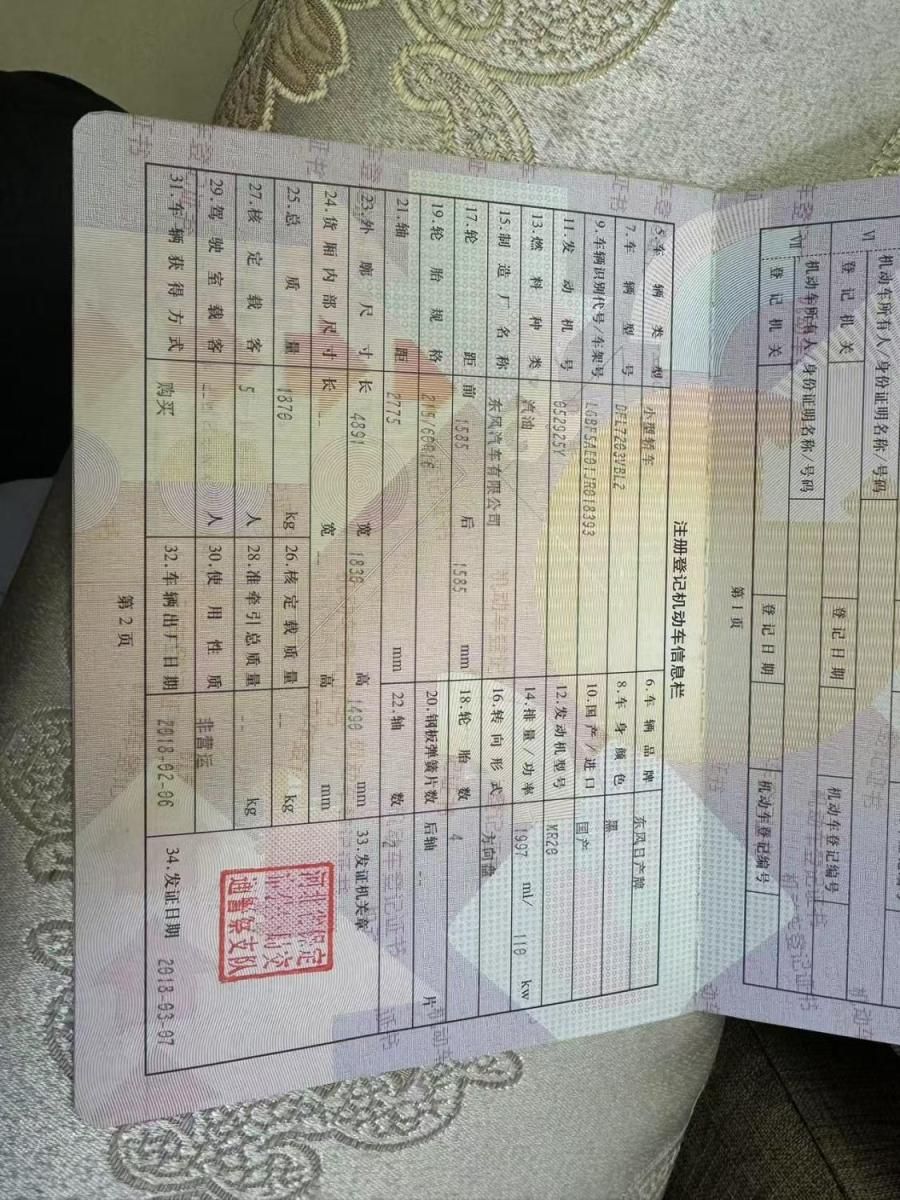 机动车所有人/身份证明名称/号码
Ⅵ
登记机关
登记日期
机动车登记编号
Ⅶ
机动车所有人/身份证明名称/号码
登记机关
登记日期
机动车登记编号
第1页
注册登记机动车信息栏
5.车辆类型 小型轿车 6.车辆品牌 东风日产牌
7.车辆型号 DFL7203VBL2 8.车身颜色 黑
9.车辆识别代号/车架号 LGBF5AE01JR018393 10.国产/进口 国产
11.发动机号 052925Y 12.发动机型号 MR20
13.燃料种类 汽油 14.排量/功率 1997 ml/ 110 kw
15.制造厂名称 东风汽车有限公司 16.转向形式 方向盘
17.轮距 前 1585 后 1585 mm 18.轮胎数 4
19.轮胎规格 215/60R16 20.钢板弹簧片数 后轴 -- 片
21.轴距 2775 mm 22.轴数 2
23.外廓尺寸 长 4891 宽 1830 高 1490 mm 33.发证机关章
24.货厢内部尺寸 长 -- 宽 -- 高 -- mm
25.总质量 1870 kg 26.核定载质量 -- kg
27.核定载客 5 人 28.准牵引总质量 -- kg
29.驾驶室载客 -- 人 30.使用性质 非营运
31.车辆获得方式 购买 32.车辆出厂日期 2018-02-06 34.发证日期 2018-03-07
通警察支队
第2页